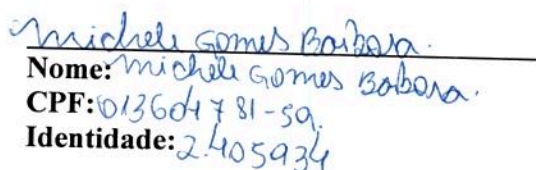 Michele Gomes Barbosa.
Nome: Michele Gomes Barbosa.
CPF: 013604781-59.
Identidade: 2.405934